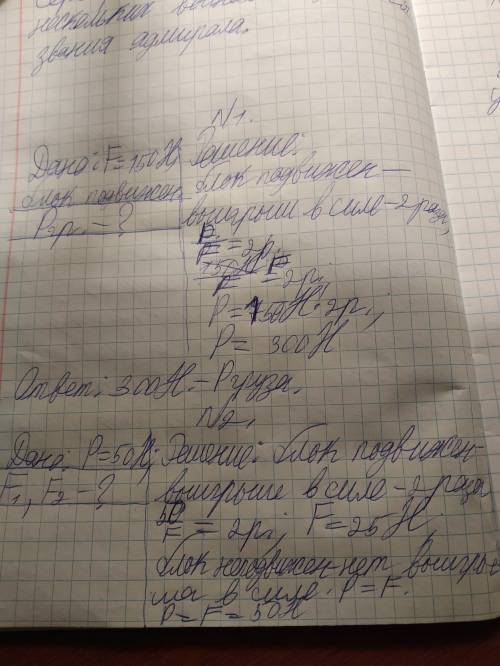 нескольких
звания адмирала.
N1.
Дано: F=150Н; Решение:
блок подвижен блок подвижен —
Pгр. – ? выигрыш в силе – 2 раза;
P/F = 2р;
= 2р;
P = 150Н·2р;
P = 300Н
Ответ: 300Н. – Pгруза.
N2.
Дано: P=50Н; Решение: блок подвижен –
F1, F2 – ? выигрыш в силе – 2 раза
50/F = 2р; F = 25Н;
блок неподвижен – нет выигры-
ша в силе. P = F.
P = F = 50Н